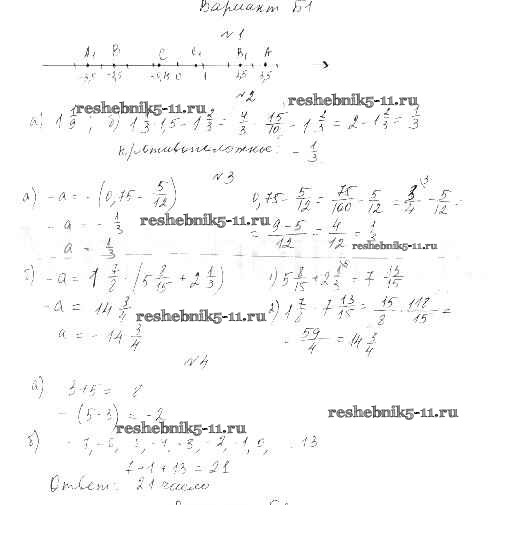 Вариант Б1
№1
A₁ B C C₁ B₁ A
-3,5 -2,5 0 1 2,5 3,5
№2
reshebnik5-11.ru reshebnik5-11.ru
а) 1 1/9 ; б) 1 1/3 · 1,5 - 1 2/3 = 4/3 · 15/10 - 1 2/3 = 2 - 1 2/3 = 1/3
противоположное: - 1/3
№3
а) -a = -(0,75 - 5/12) 0,75 - 5/12 = 75/100 - 5/12 = 3/4 - 5/12 =
reshebnik5-11.ru
-a = - 1/3 = 9-5/12 = 4/12 = 1/3
reshebnik5-11.ru
a = 1/3
б) -a = 1 7/8 · (5 8/15 + 2 1/3) 1) 5 8/15 + 2 1/3 = 7 13/15
-a = 14 3/4 2) 1 7/8 · 7 13/15 = 15/8 · 118/15 =
reshebnik5-11.ru
a = - 14 3/4 = 59/4 = 14 3/4
№4
а) 3+5 = 8
reshebnik5-11.ru
-(5-3) = -2
reshebnik5-11.ru
б) -7, -6, -5, -4, -3, -2, -1, 0, ... 13
7+1+13 = 21
Ответ: 21 число